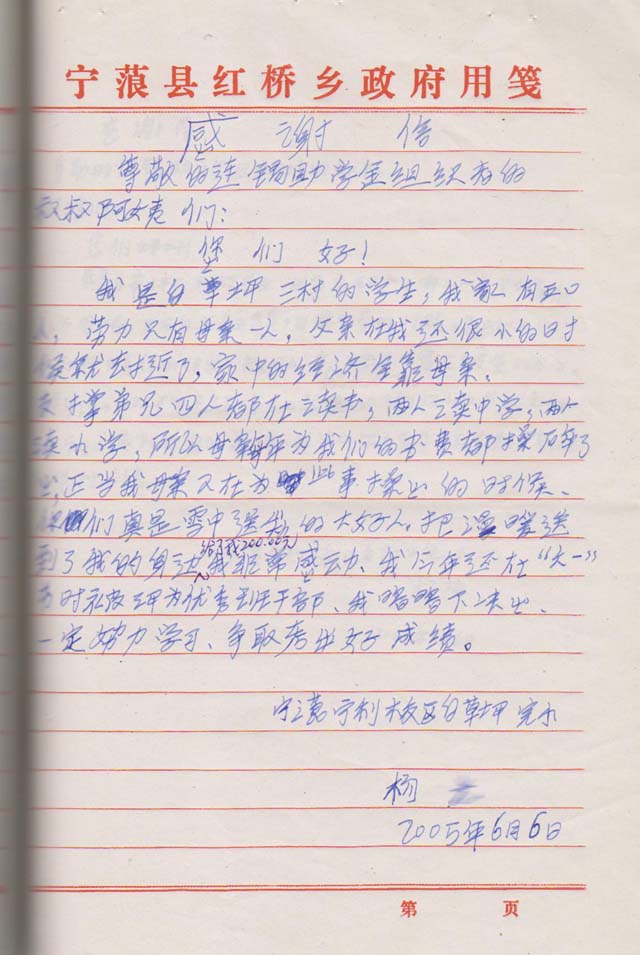 宁蒗县红桥乡政府用笺
感谢信
尊敬的连锡助学金组织者的
叔叔阿姨们:
您们好!
我是白草坪三村的学生,我家有五口
,劳力只有母亲一人,父亲在我还很小的时
候就去世了,家中的经济全靠母亲。
弟兄四人都在读书,两人读中学,两个
读小学,所以母亲每年为我们的书费都操碎了
心,正当我母亲又在为此事操心的时候、
们真是雪中送炭的大好人。把温暖送
到了我的身边给了我200.00元我非常感动、我今年还在“六一”
时被评为优秀班干部、我暗暗下决心、
一定努力学习、争取考出好成绩。
宁蒗宁利校区白草坪完小
杨
2005年6月6日
第 页